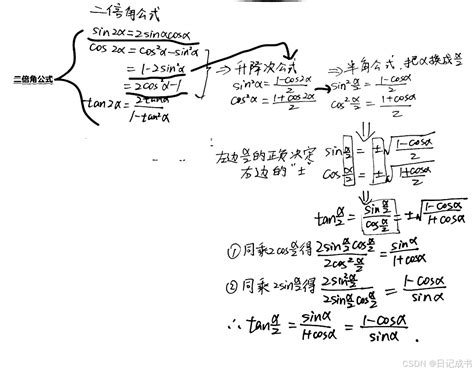 二倍角公式
二倍角公式
sin2α=2sinαcosα
cos2α=cos²α-sin²α
=1-2sin²α
=2cos²α-1
tan2α=2tanα/1-tan²α
⇒升降次公式
sin²α=1-cos2α/2
cos²α=1+cos2α/2
⇒半角公式,把α换成α/2
sin²α/2=1-cosα/2
cos²α/2=1+cosα/2
左边α/2的正负决定
右边的"±"
sinα/2=±√1-cosα/2
cosα/2=±√1+cosα/2
tanα/2=sinα/2/cosα/2=±√1-cosα/1+cosα
①同乘2cosα/2得2sinα/2cosα/2/2cos²α/2=sinα/1+cosα
②同乘2sinα/2得2sin²α/2/2sinα/2cosα/2=1-cosα/sinα
∴tanα/2=sinα/1+cosα=1-cosα/sinα.
CSDN @日记成书